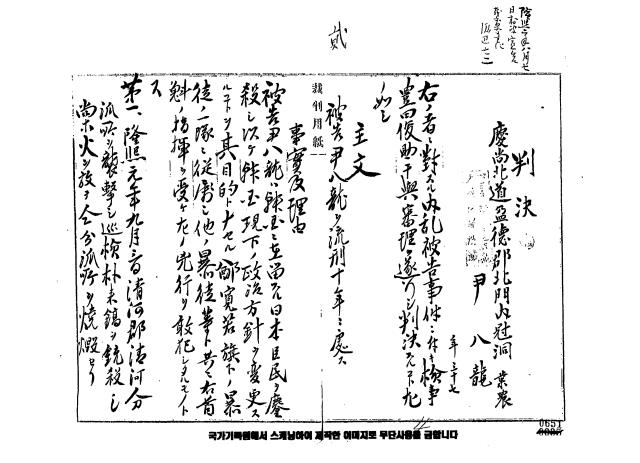 判決
慶尚北道盈德郡北門內冠洞 業農
尹八龍
年三十七
右ノ者ニ對スル內乱被告事件ニ付キ檢事
豊田俊助干與審理ヲ遂ケシ判決スルコト左
ノ如シ
主文
被告尹八龍ヲ流刑十年ニ處ス
裁判用紙
貳
事實及理由
被告尹八龍ハ韓国ニ在留スル日本臣民ヲ鏖
殺シ以テ韓国現下ノ政治方針ヲ變更ス
ルコトヲ其目的トナセル鄭寬若旗下ノ暴
徒ノ一隊ニ從屬シ他ノ暴徒等ト共ニ右首
魁ノ指揮ヲ受ケ左ノ兇行ヲ敢犯シタルモノト
ス
第一、隆熙元年九月三日淸河郡淸河分
派所ヲ襲擊シ巡檢朴來鎬ヲ銃殺シ
尚ホ火ヲ放テ仝分派所ヲ燒燬セリ
0651
국가기록원에서 스캐닝하여 제작한 이미지로 무단사용을 금합니다